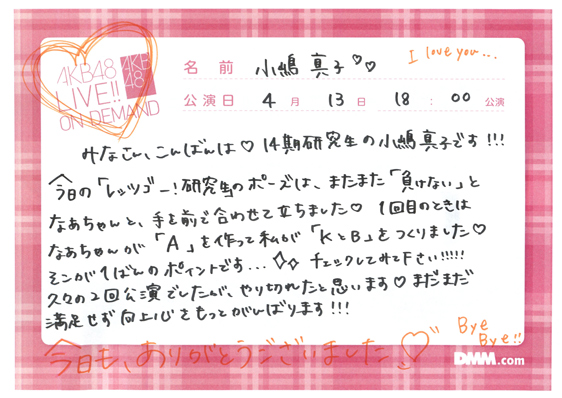 AKB48
LIVE!!
ON DEMAND
AKB
48
名前 小嶋真子♡♡
I love you...
公演日 4月 13日 18:00 公演
みなさん、こんばんは♡14期研究生の小嶋真子です!!!
今日の「レッツゴー!研究生のポーズは、またまた「負けない」と
なあちゃんと、手を前で合わせて立ちました♡ 1回目のときは
なあちゃんが「A」を作って私が「KとB」をつくりました♡
そこが1ばんのポイントです... チェックしてみて下さい!!!!!
久々の2回公演でしたが、やり切れたと思います♡まだまだ
満足せず向上心をもってがんばります!!!
今日も、ありがとうございました♡
Bye
Bye!!
DMM.com